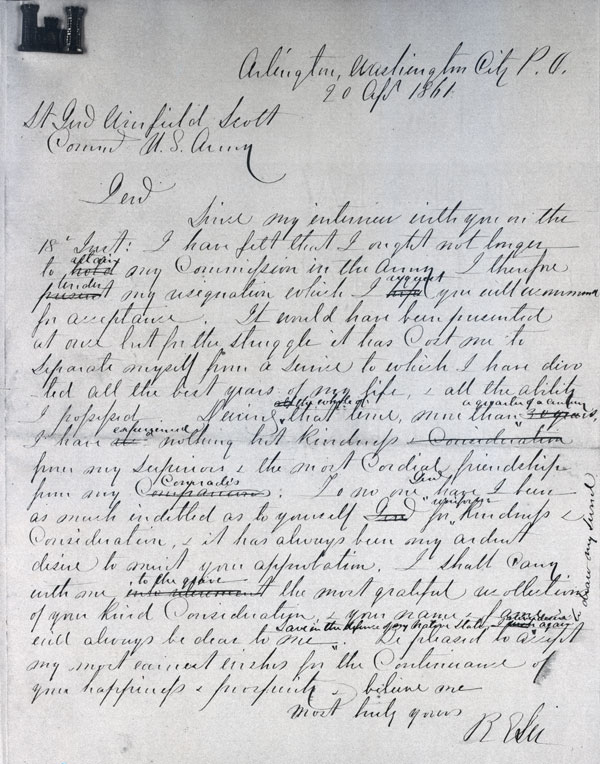 Arlington, Washington City P.O.
20 Apr 1861
Lt Genl Winfield Scott
Comnd U.S. Army
Genl
Since my interview with you on the
18th Inst: I have felt that I ought not longer
retain
to hold my Commission in the Army. I therefore
tender request
present my resignation which I you will recommend
for acceptance. It would have been presented
at once but for the struggle it has Cost me to
separate myself from a service to which I have devo
ted all the best years of my life, & all the ability
I possessed. During the whole of that time, more than a quarter of a century 30 years,
experienced
I have nothing but kindness & Consideration
from my superiors & the most Cordial friendship
Comrades Genl
from my Companions: To no one have I been
uniform
as much indebted as to yourself Genl for kindness &
Consideration, & it has always been my ardent
desire to merit your approbation. I shall carry
to the grave
with me into retirement the most grateful recollections
of your kind Consideration, & your name & fame
will always be dear to me Save in the defence of my native State,
never desire again to draw my sword
Be pleased to accept
my most earnest wishes for the Continuance of
your happiness & prosperity & believe me
most truly yours
R E Lee